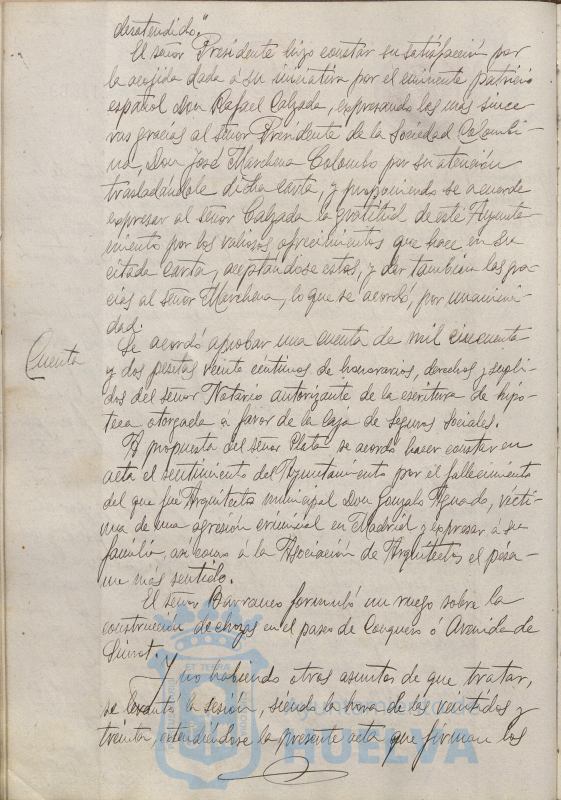 desatendido."
El señor Presidente hizo constar su satisfacción por
la acojida dada á su iniciativa por el eminente patricio
español Don Rafael Calzada, expresando las más since-
ras gracias al señor Presidente de la Sociedad Colombi-
na, Don José Marchena Colombo por su atención
trasladándole dicha carta, y proponiendo se acuerde
expresar al señor Calzada la gratitud de este Ayunta-
miento por los valiosos ofrecimientos que hace en su
citada carta, aceptándose estos, y dar tambien las gra-
cias al señor Marchena, lo que se acordó, por unanimi-
dad.
Cuenta
Se acordó aprobar una cuenta de mil cincuenta
y dos pesetas veinte céntimos de honorarios, derechos y supli-
dos del señor Notario autorizante de la escritura de hipo-
teca otorgada á favor de la Caja de Seguros Sociales.
A propuesta del señor Plata se acordó hacer constar en
acta el sentimiento del Ayuntamiento por el fallecimiento
del que fué Arquitecto municipal Don Gonzalo Aguado, vícti-
ma de una agresión criminal en Madrid y expresar á su
familia, asi como á la Asociación de Arquitectos el pesa-
me más sentido.
El señor Barranco formuló un ruego sobre la
construcción de chozas en el paseo de Conquero ó Avenida de
Y no habiendo otros asuntos de que tratar,
se levantó la sesión, siendo la hora de las veintidos y
treinta, extendiéndose la presente acta que firman los
ET TERRAE
HUELVA